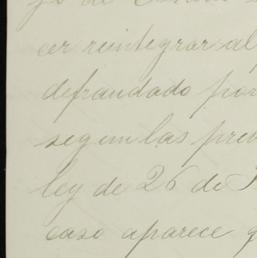 de
cer reintegrar al
defraudado por
segun las pre
ley de 26 de
caso aparece q